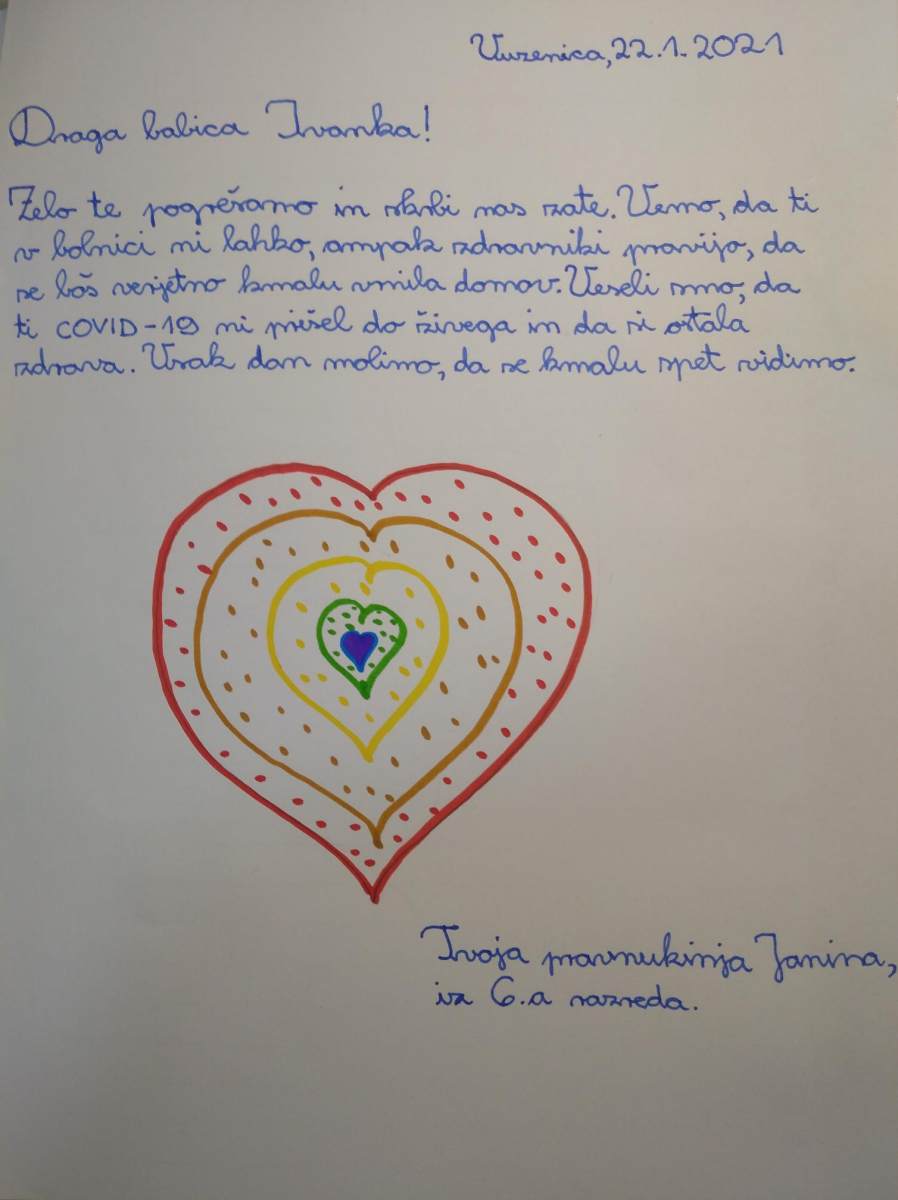 Vuzenica, 22.1.2021
Draga babica Ivanka!
Zelo te pogrešamo in skrbi nas zate. Vemo, da ti
v bolnici ni lahko, ampak zdravniki pravijo, da
se boš verjetno kmalu vrnila domov. Veseli smo, da
ti COVID-19 ni prišel do živega in da si ostala
zdrava. Vsak dan molimo, da se kmalu spet vidimo.
Tvoja pravnukinja Janina,
iz 6.a razreda.